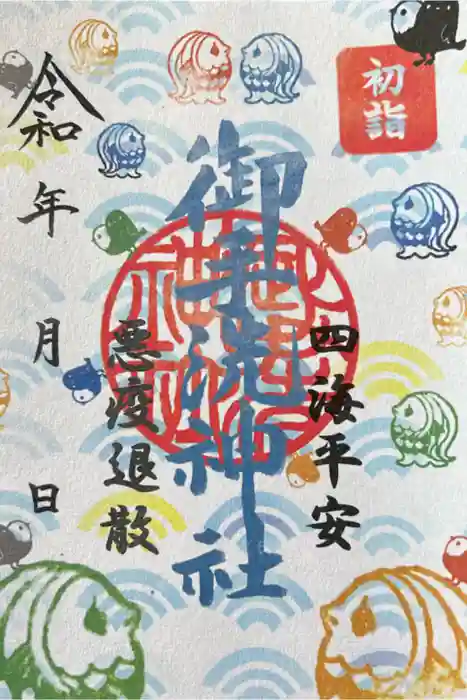 初詣
四海平安
御手洗神社
悪疫退散
令和 年 月 日